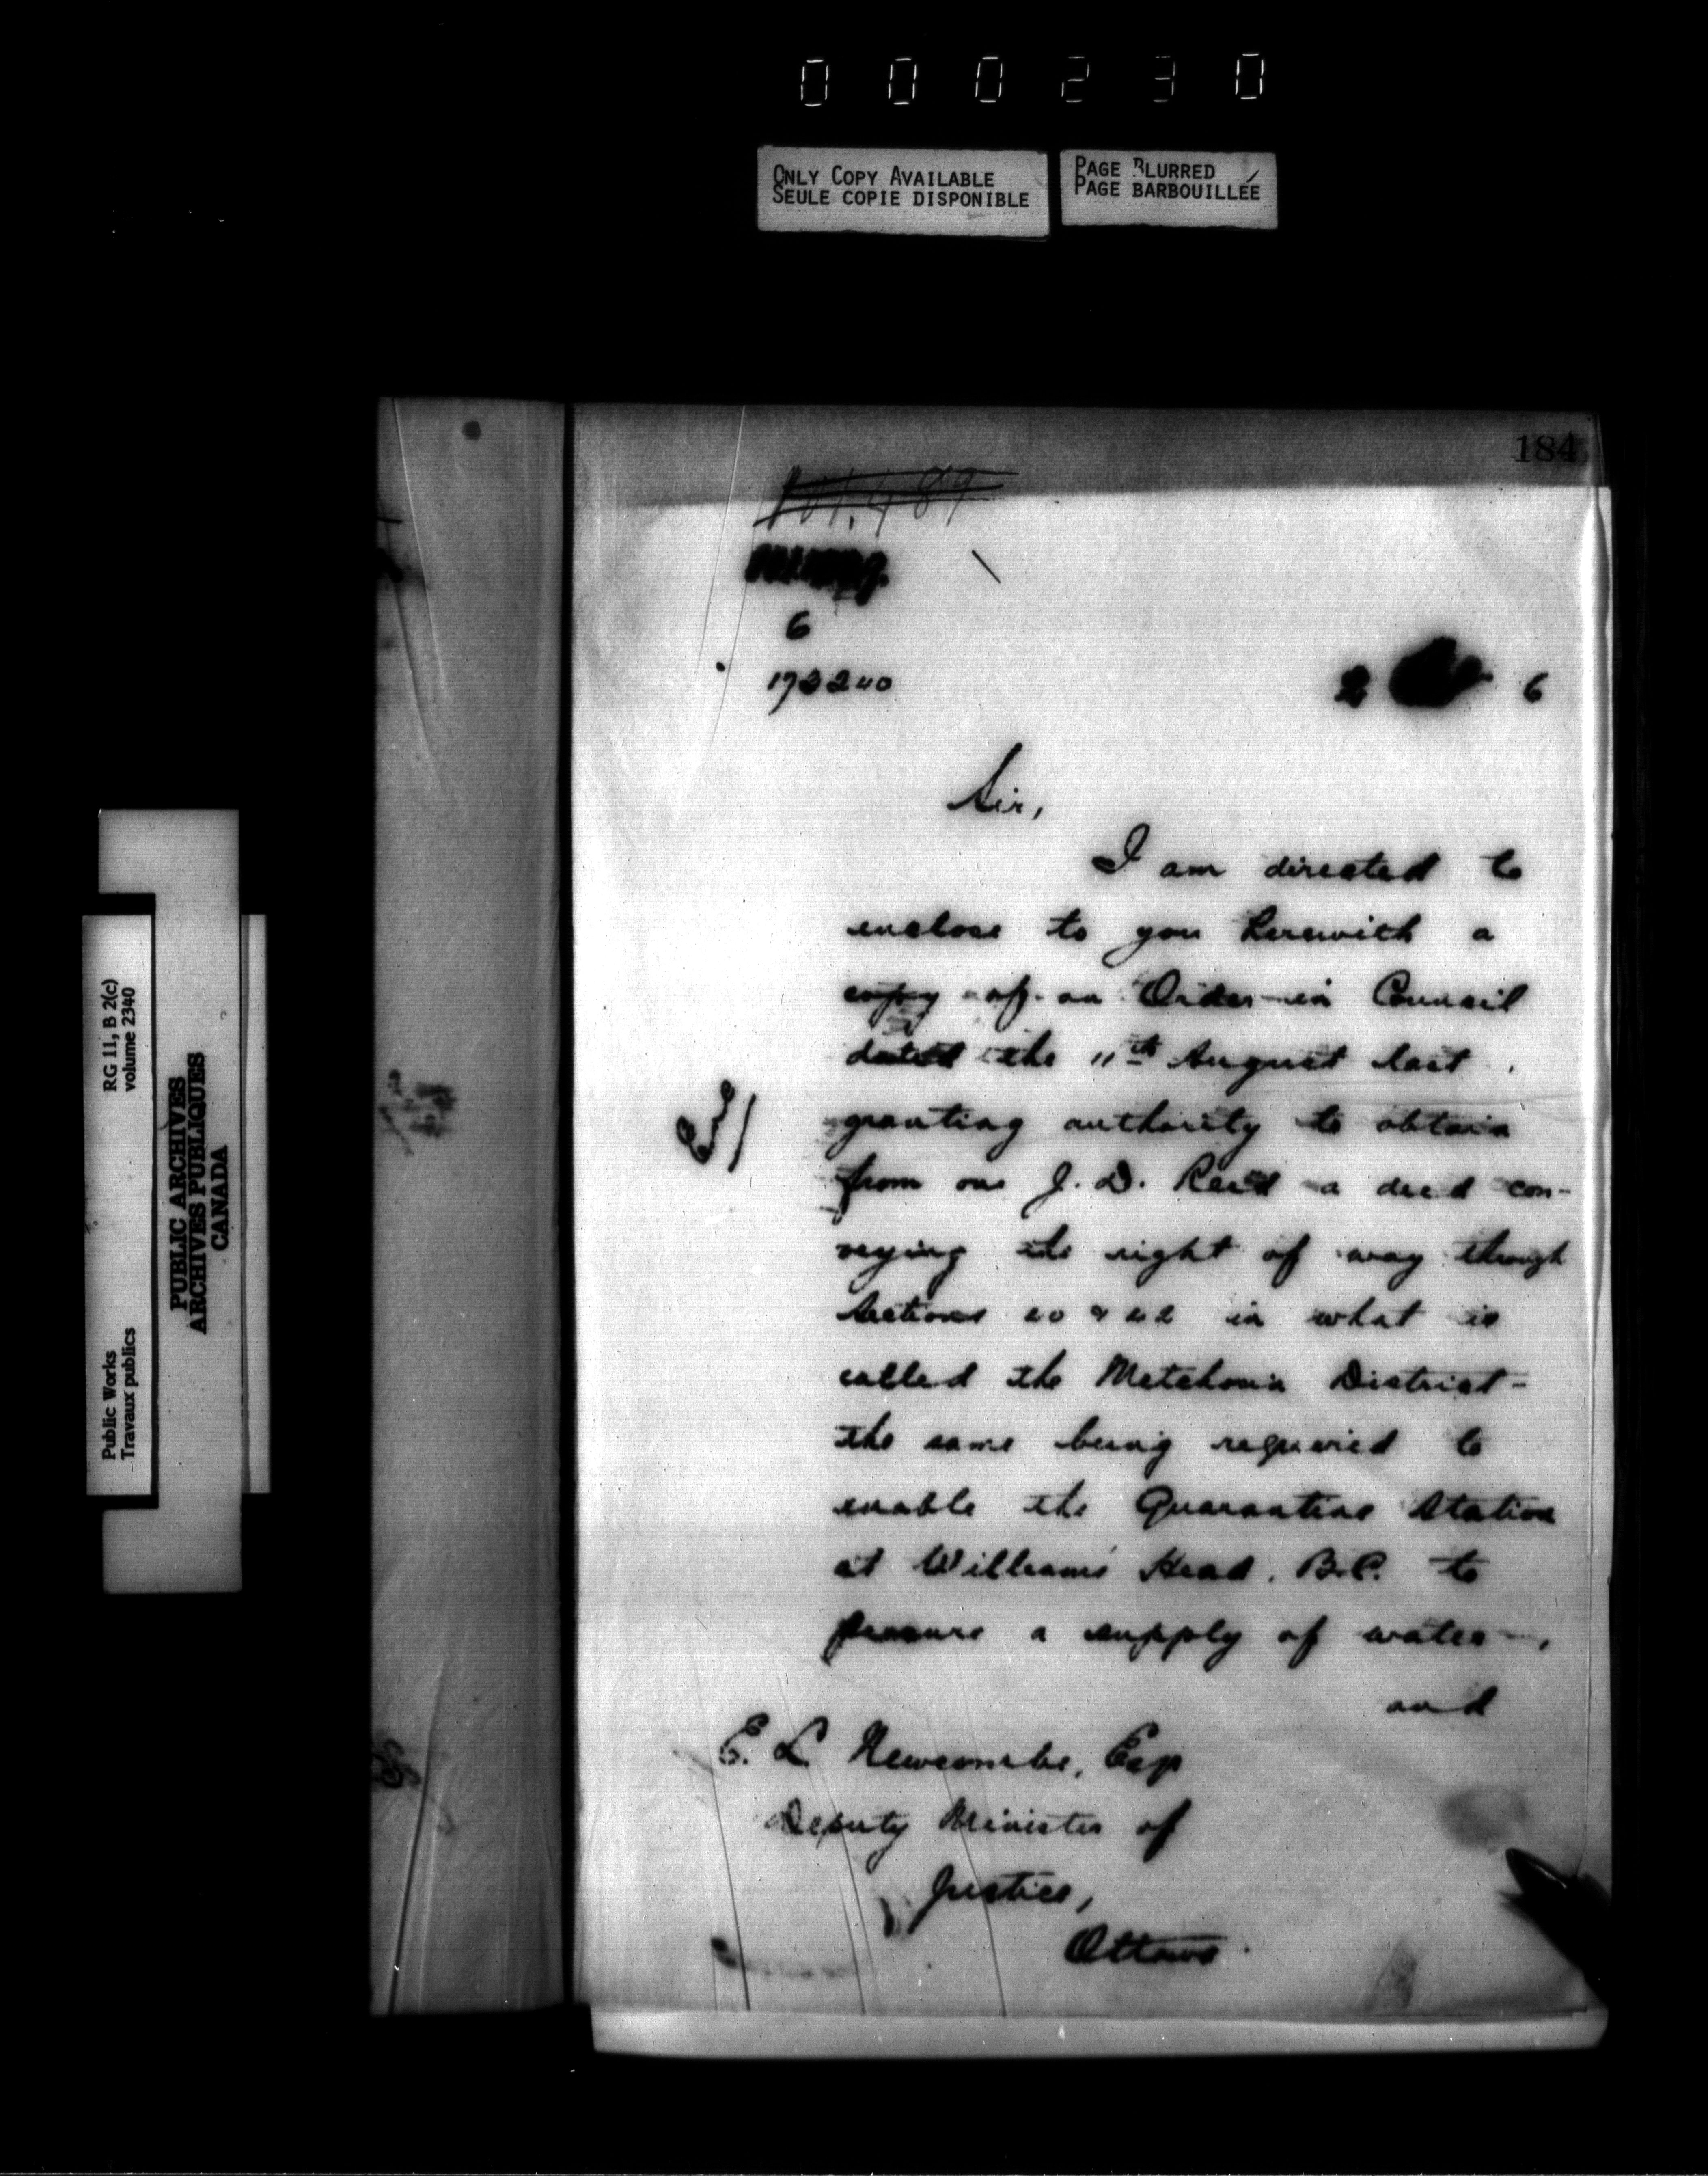 000230
ONLY COPY AVAILABLE
SEULE COPIE DISPONIBLE
PAGE BLURRED
PAGE BARBOUILLÉE
RG 11, B 2(c)
volume 2340
Public Works
Travaux publics
PUBLIC ARCHIVES
ARCHIVES PUBLIQUES
CANADA
184
6
173240
2 6
Sir,
I am directed to
enclose to you herewith a
copy of an Order in Council
dated the 11th August last,
Enc/
granting authority to obtain
from one J. D. Reid a deed con-
veying the right of way through
Sections 20 & 22 in what is
called the Metchosin District -
the same being required to
enable the Quarantine Station
at Williams' Head, B.C. to
procure a supply of water,
and
E. L. Newcombe, Esq
Deputy Minister of
Justice,
Ottawa.